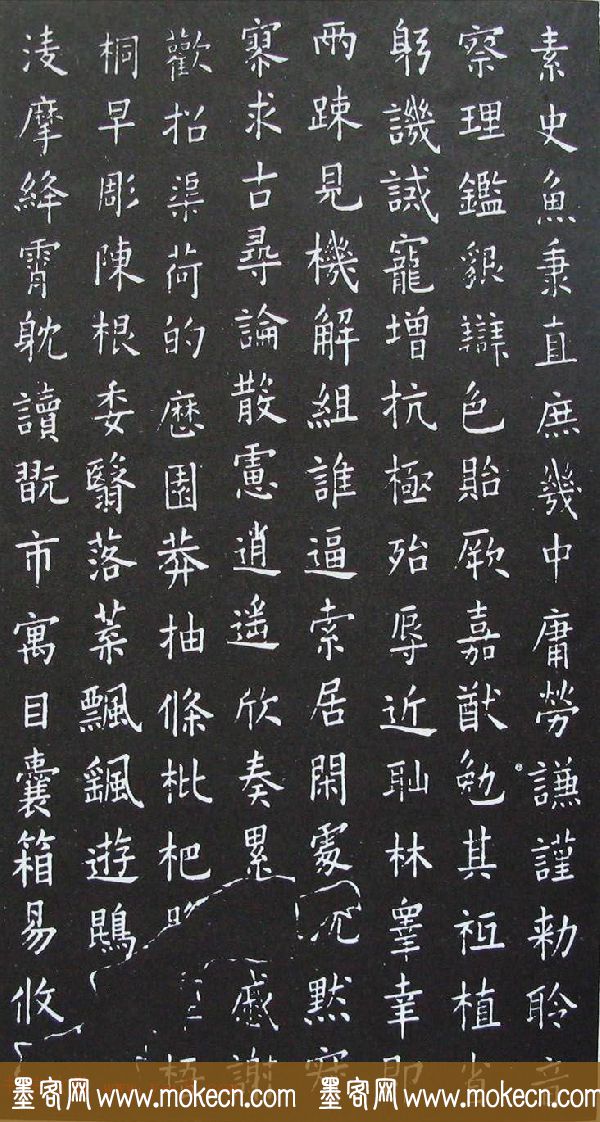 素史魚秉直庶幾中庸勞謙謹勑聆音
察理鑑貌辯色貽厥嘉猷勉其祗植省
躬譏誡寵增抗極殆辱近耻林睾幸即
兩疎見機解組誰逼索居閑處沉默寂
寥求古尋論散慮逍遙欣奏累慼謝
歡招渠荷的歷園莽抽條枇杷梧
桐早彫陳根委翳落葉飄颻遊鵾
淩摩絳霄耽讀翫市寓目囊箱易攸
墨客网 www.mokecn.com 墨客网 www.mokecn.com